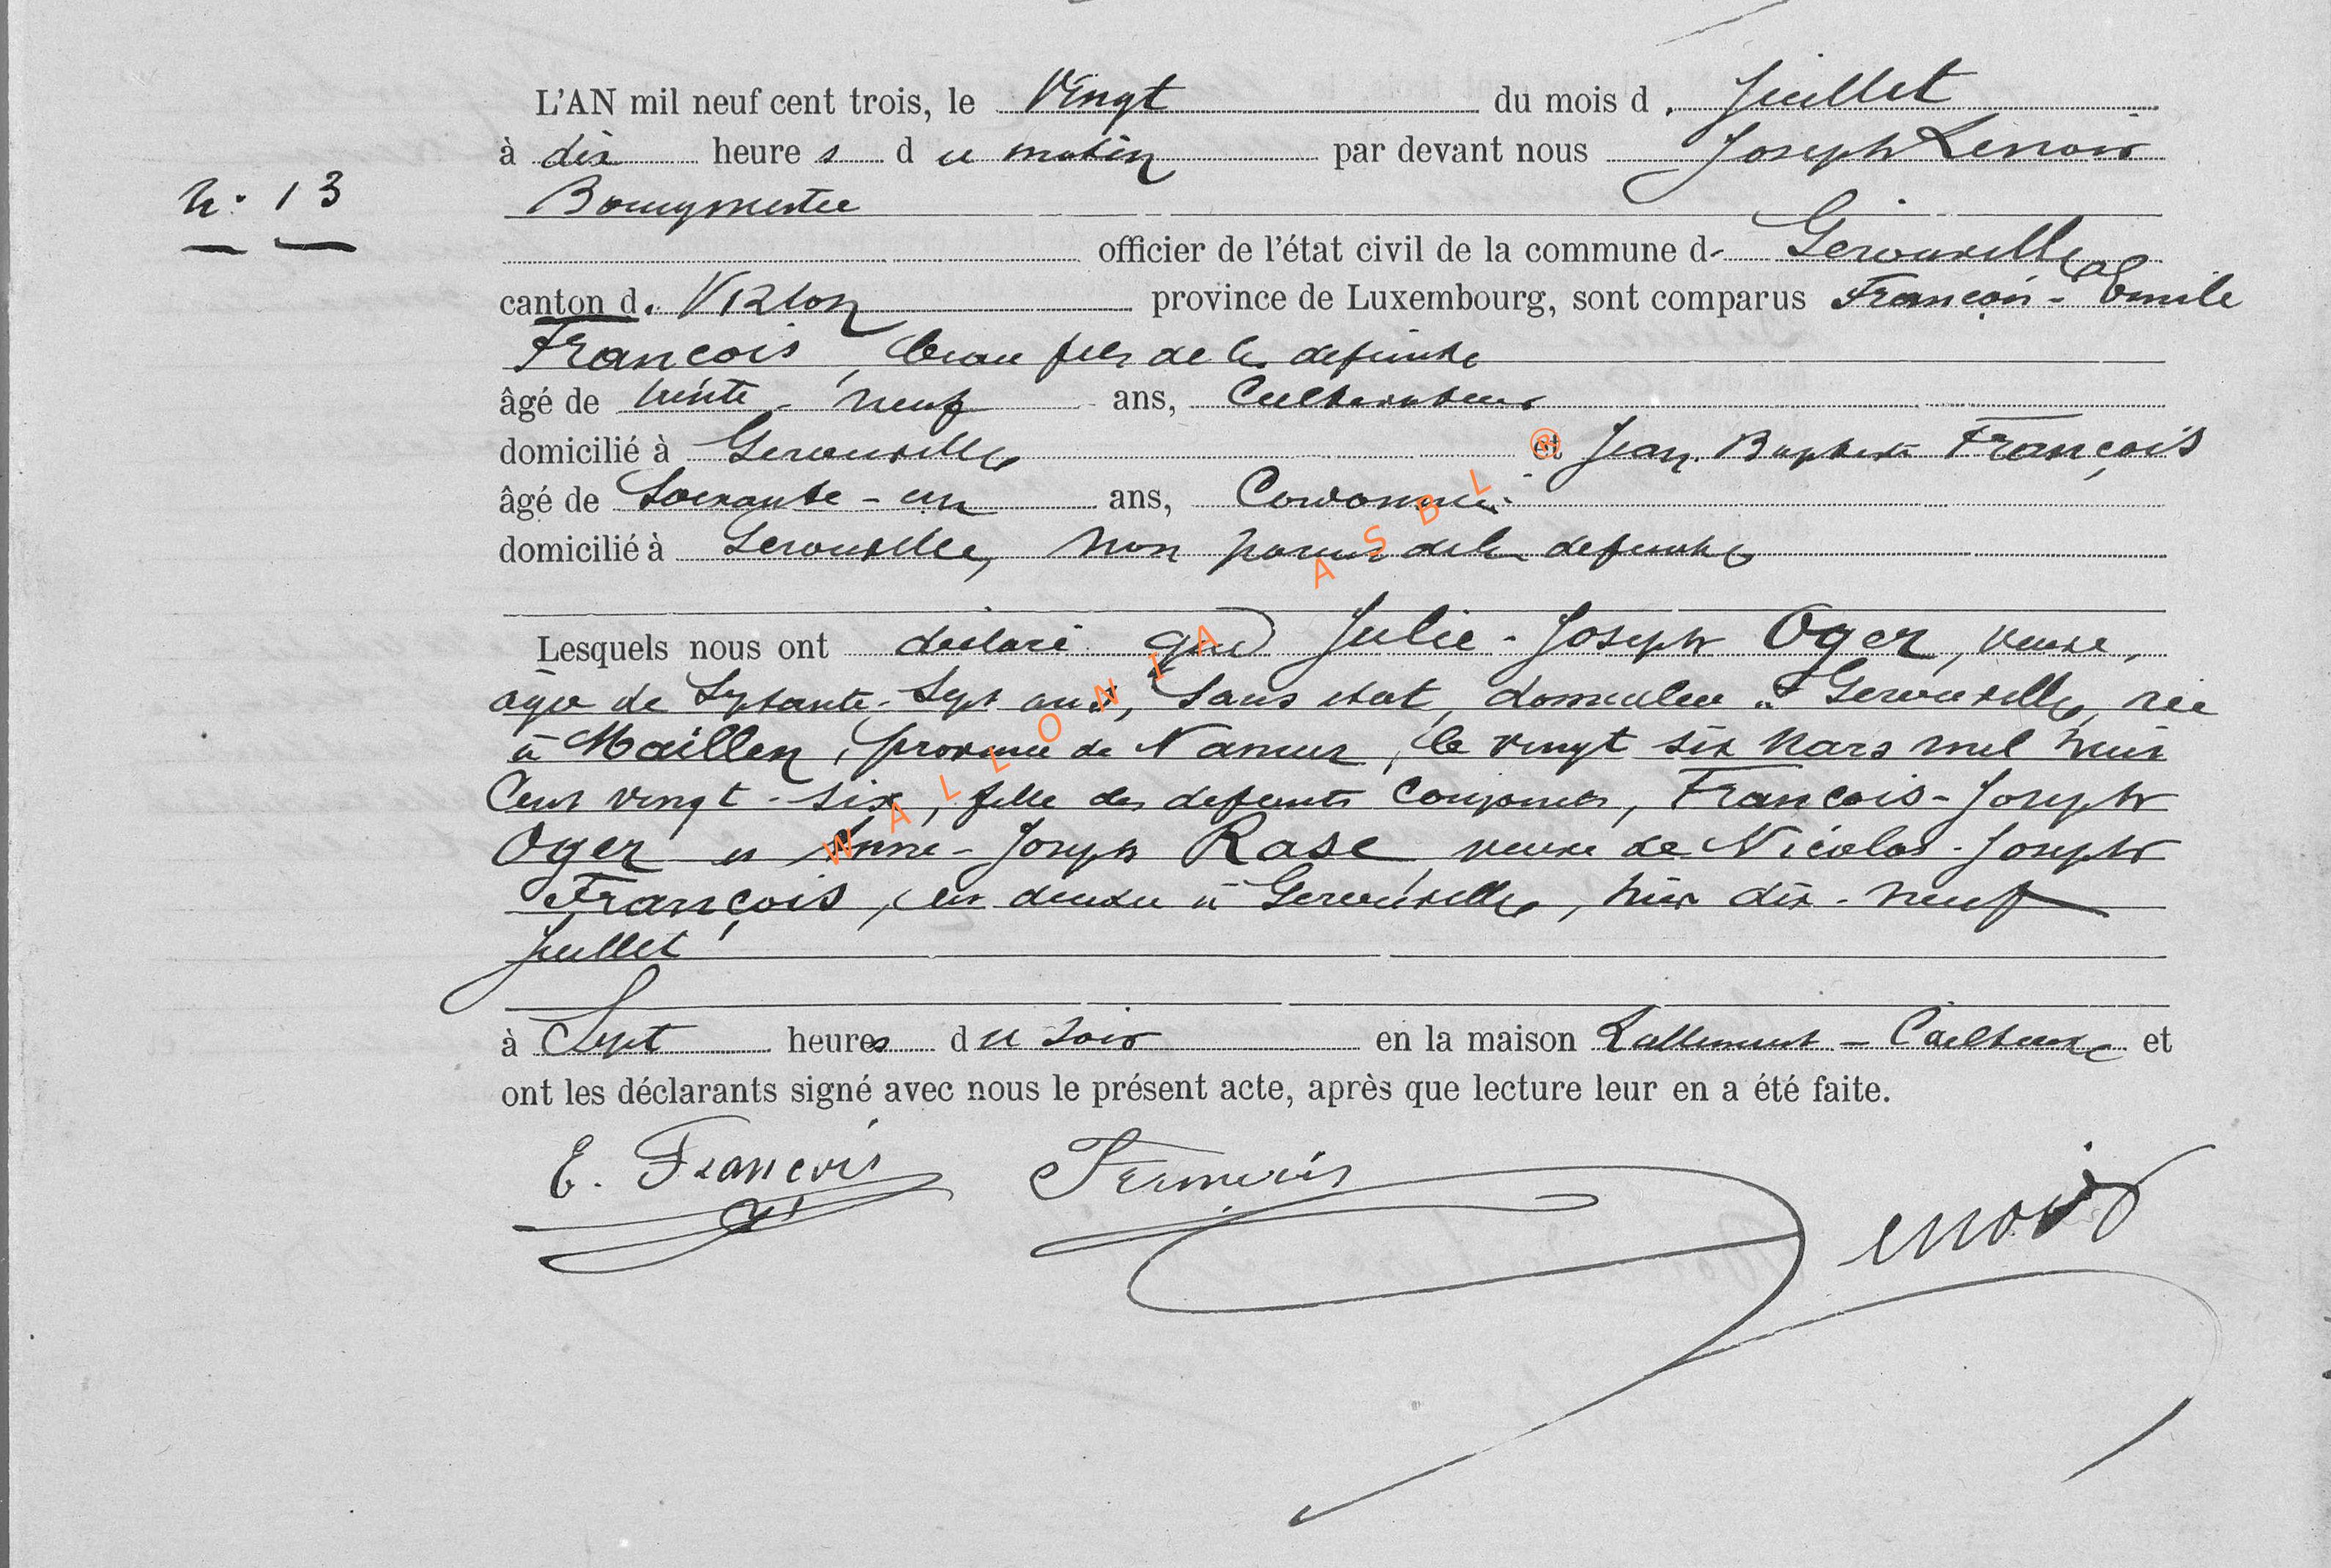 L'AN mil neuf cent trois, le Vingt du mois d. Juillet
à dix heure s d u matin par devant nous Joseph Lenoir
N. 13
Bourgmestre
officier de l'état civil de la commune d. Gerouville
canton d. Virton province de Luxembourg, sont comparus François-Emile
François, beau fils de la défunte
âgé de trente-neuf ans, Cultivateur
domicilié à Gerouville et Jean-Baptiste François
âgé de Soixante-un ans, Cordonnier
domicilié à Gerouville, non parent de la défunte
Lesquels nous ont déclaré que Julie-Joseph Oger, veuve,
âgée de Septante-Sept ans, Sans état, domiciliée à Gerouville, née
à Maillen, province de Namur, le vingt six Mars mil huit
Cent vingt-six, fille des défunts Conjoints, François-Joseph
Oger et Anne-Joseph Rase, veuve de Nicolas-Joseph
François, est décédée à Gerouville, hier dix-neuf
Juillet
à Sept heures du Soir en la maison Lallemant-Cailteux et
ont les déclarants signé avec nous le présent acte, après que lecture leur en a été faite.
E. François François Lenoir
WALLONIA ASBL @